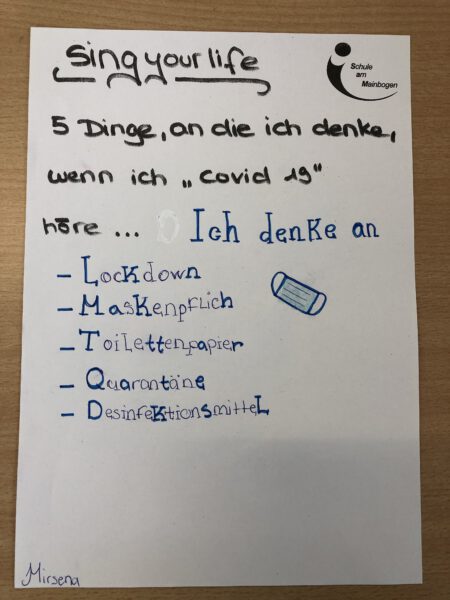 sing your life
Schule
am
Mainbogen
5 Dinge, an die ich denke,
wenn ich „Covid 19"
höre ... Ich denke an
- Lockdown
- Maskenpflich
- Toilettenpapier
- Quarantäne
- Desinfektionsmittel
Mirsena